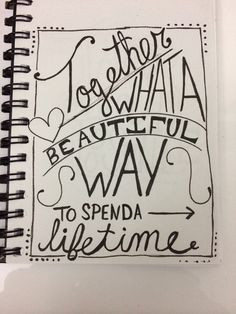 Together
WHAT A
BEAUTIFUL
WAY
TO SPEND A
lifetime